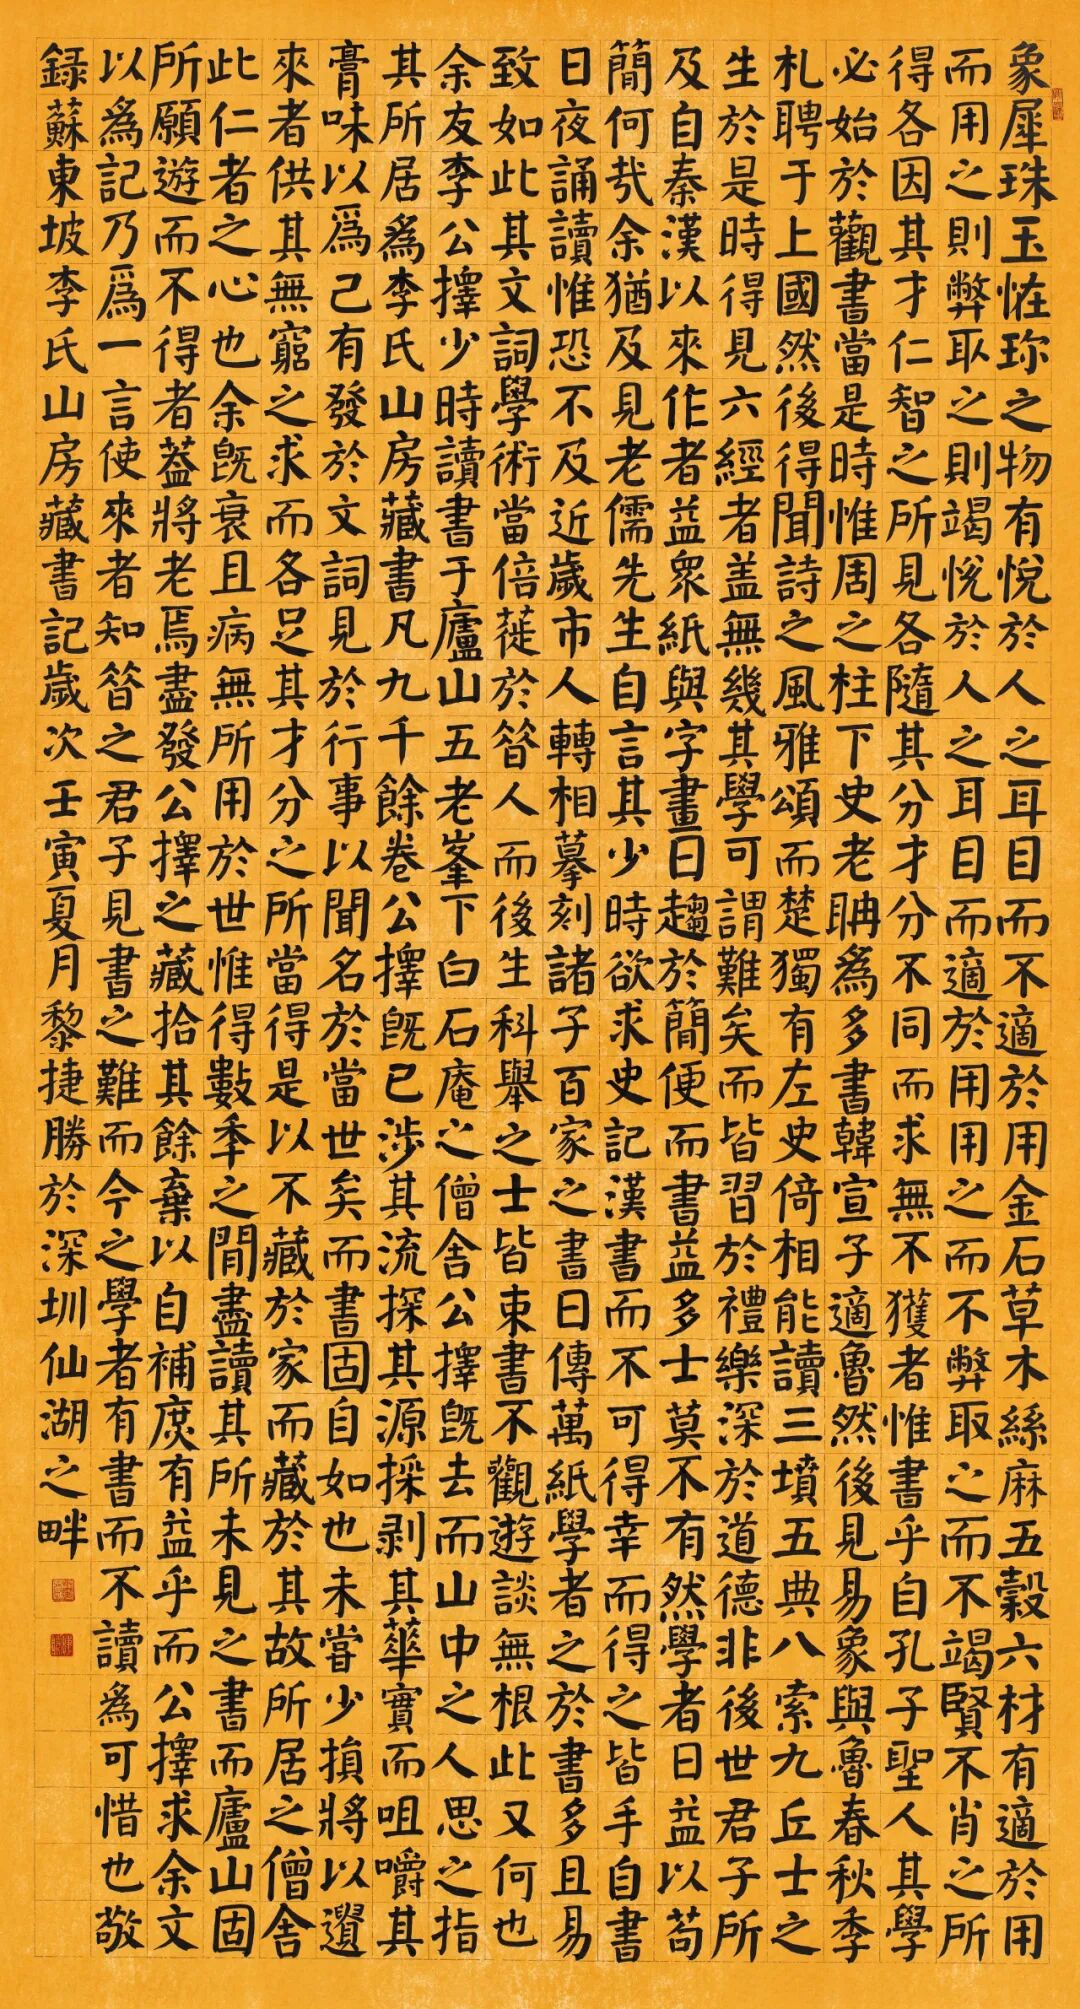 象犀珠玉恠珍之物有悅於人之耳目而不適於用金石草木絲麻五穀六材有適於用
而用之則弊取之則竭悅於人之耳目而適於用用之而不弊取之而不竭賢不肖之所
得各因其才仁智之所見各隨其分才分不同而求無不獲者惟書乎自孔子聖人其學
必始於觀書當是時惟周之柱下史老聃爲多書韓宣子適魯然後見易象與魯春秋季
札聘于上國然後得聞詩之風雅頌而楚獨有左史倚相能讀三墳五典八索九丘士之
生於是時得見六經者盖無幾其學可謂難矣而皆習於禮樂深於道德非後世君子所
及自秦漢以來作者益眾紙與字畫日趨於簡便而書益多士莫不有然學者日益以苟
簡何哉余猶及見老儒先生自言其少時欲求史記漢書而不可得幸而得之皆手自書
日夜誦讀惟恐不及近歲市人轉相摹刻諸子百家之書日傳萬紙學者之於書多且易
致如此其文詞學術當倍蓰於昝人而後生科舉之士皆束書不觀遊談無根此又何也
余友李公擇少時讀書于廬山五老峯下白石庵之僧舍公擇旣去而山中之人思之指
其所居爲李氏山房藏書凡九千餘卷公擇旣已涉其流探其源採剥其華實而咀嚼其
膏味以爲己有發於文詞見於行事以聞名於當世矣而書固自如也未嘗少損將以遺
來者供其無窮之求而各足其才分之所當得是以不藏於家而藏於其故所居之僧舍
此仁者之心也余旣衰且病無所用於世惟得數季之閒盡讀其所未見之書而廬山固
所願遊而不得者葢將老焉盡發公擇之藏拾其餘棄以自補庶有益乎而公擇求余文
以爲記乃爲一言使來者知昝之君子見書之難而今之學者有書而不讀爲可惜也敬
録蘇東坡李氏山房藏書記歲次壬寅夏月黎捷勝於深圳仙湖之畔